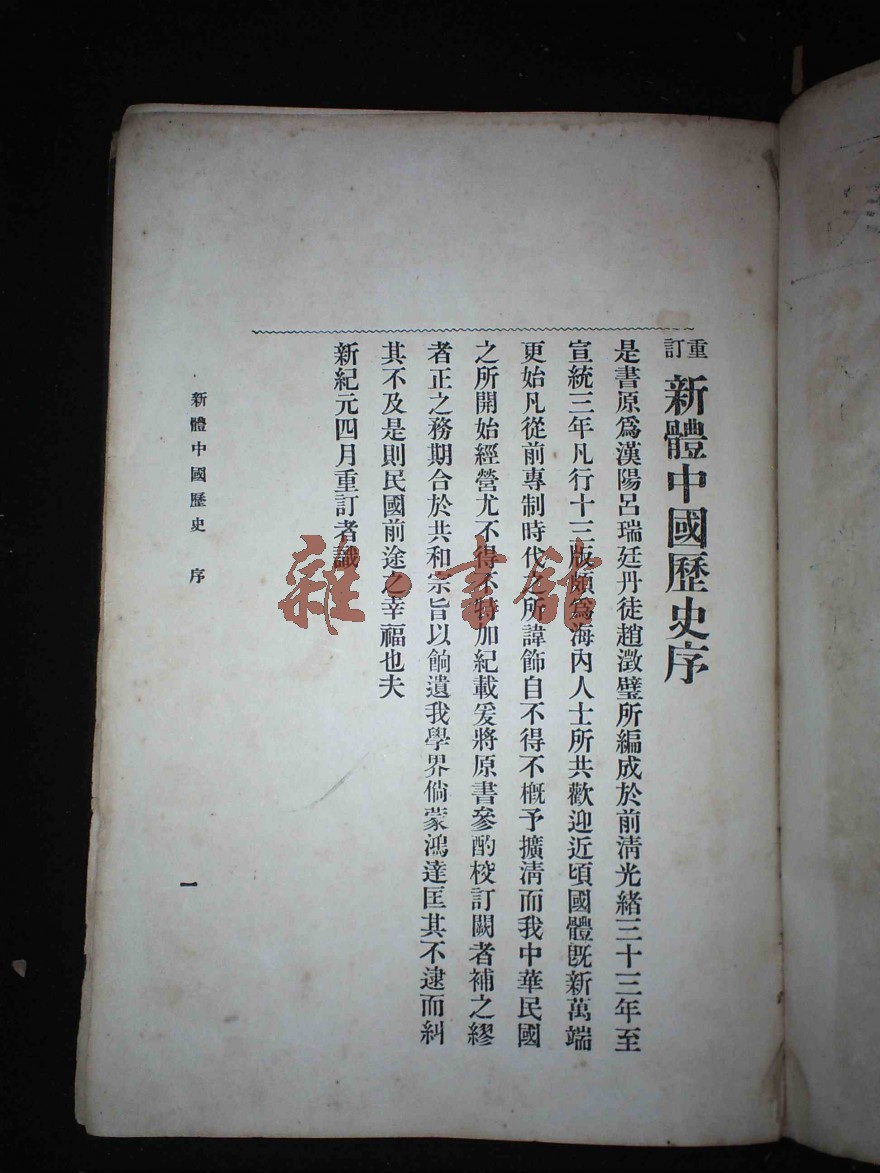 重訂新體中國歷史序
是書原爲漢陽呂瑞廷丹徒趙澂璧所編成於前淸光緒三十三年至
宣統三年凡行十三版頗爲海內人士所共歡迎近頃國體旣新萬端
更始凡從前專制時代之所諱飾自不得不槪予擴淸而我中華民國
之所開始經營尤不得不特加紀載爰將原書參酌校訂闕者補之繆
者正之務期合於共和宗旨以餉遺我學界倘蒙鴻達匡其不逮而糾
其不及是則民國前途之幸福也夫
新紀元四月重訂者識
新體中國歷史 序
一
雜·書館